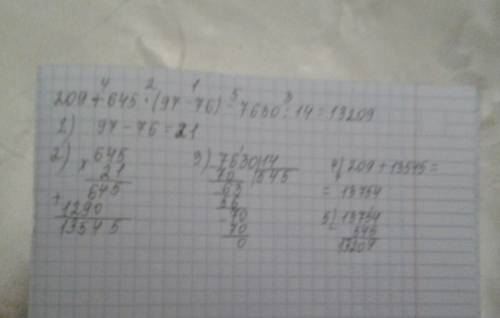 4 2 1 5 3
209 + 645 · (97 - 76) - 7630 : 14 = 13209
1) 97 - 76 = 21
2) 645 3) 7630 | 14 4) 209 + 13545 =
× 21 70 545 = 13754
645 63 5) 13754
+ 1290 56 545
13545 70 13209
70
0